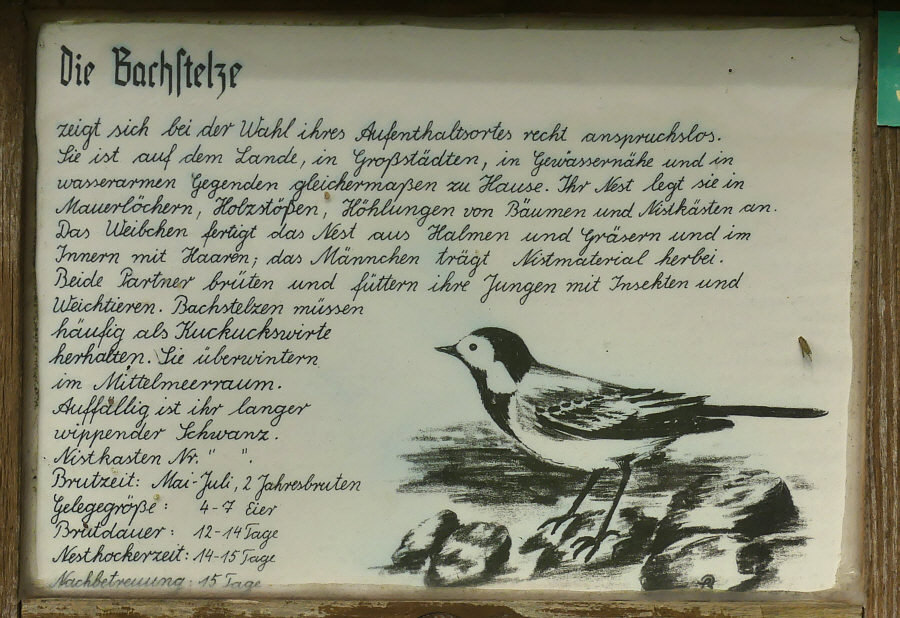 Die Bachstelze
zeigt sich bei der Wahl ihres Aufenthaltsortes recht anspruchslos.
Sie ist auf dem Lande, in Großstädten, in Gewässernähe und in
wasserarmen Gegenden gleichermaßen zu Hause. Ihr Nest legt sie in
Mauerlöchern, Holzstößen, Höhlungen von Bäumen und Nistkästen an.
Das Weibchen fertigt das Nest aus Halmen und Gräsern und im
Innern mit Haaren; das Männchen trägt Nistmaterial herbei.
Beide Partner brüten und füttern ihre Jungen mit Insekten und
Weichtieren. Bachstelzen müssen
häufig als Kuckuckswirte
herhalten. Sie überwintern
im Mittelmeerraum.
Auffällig ist ihr langer
wippender Schwanz.
Nistkasten Nr. " ".
Brutzeit: Mai-Juli, 2 Jahresbruten
Gelegegröße: 4-7 Eier
Brutdauer: 12-14 Tage
Nesthockerzeit: 14-15 Tage
Nachbetreuung: 15 Tage